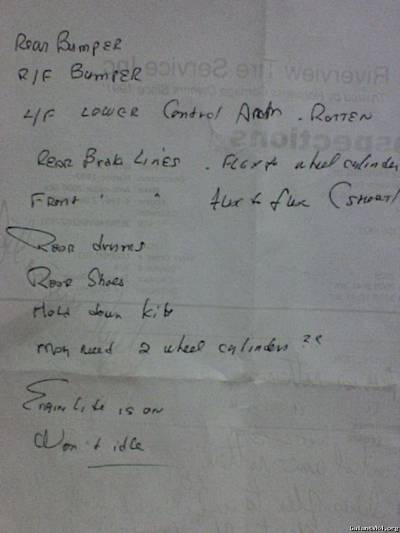 Rear Bumper
R/F Bumper
L/F Lower Control Arm . Rotten
Rear Brak Lines . Flux to wheel cylinder
Front " " flux to flux (short)
Rear drums
Rear Shoes
Hold down kit
May need 2 wheel cylinders ??
Engin Lite is on
Won't idle
Riverview Tire Service Inc
GalantVR4.org